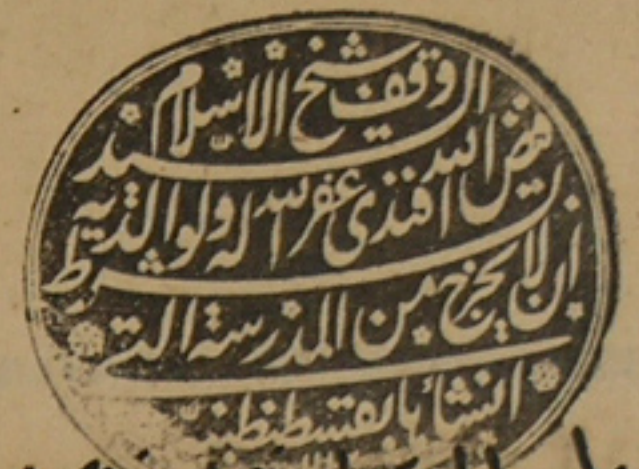 وقف شيخ الاسلام السيد
فيض الله افندى غفر الله له ولوالديه
بشرط ان لا يخرج من المدرسة التى
انشأها بقسطنطنية